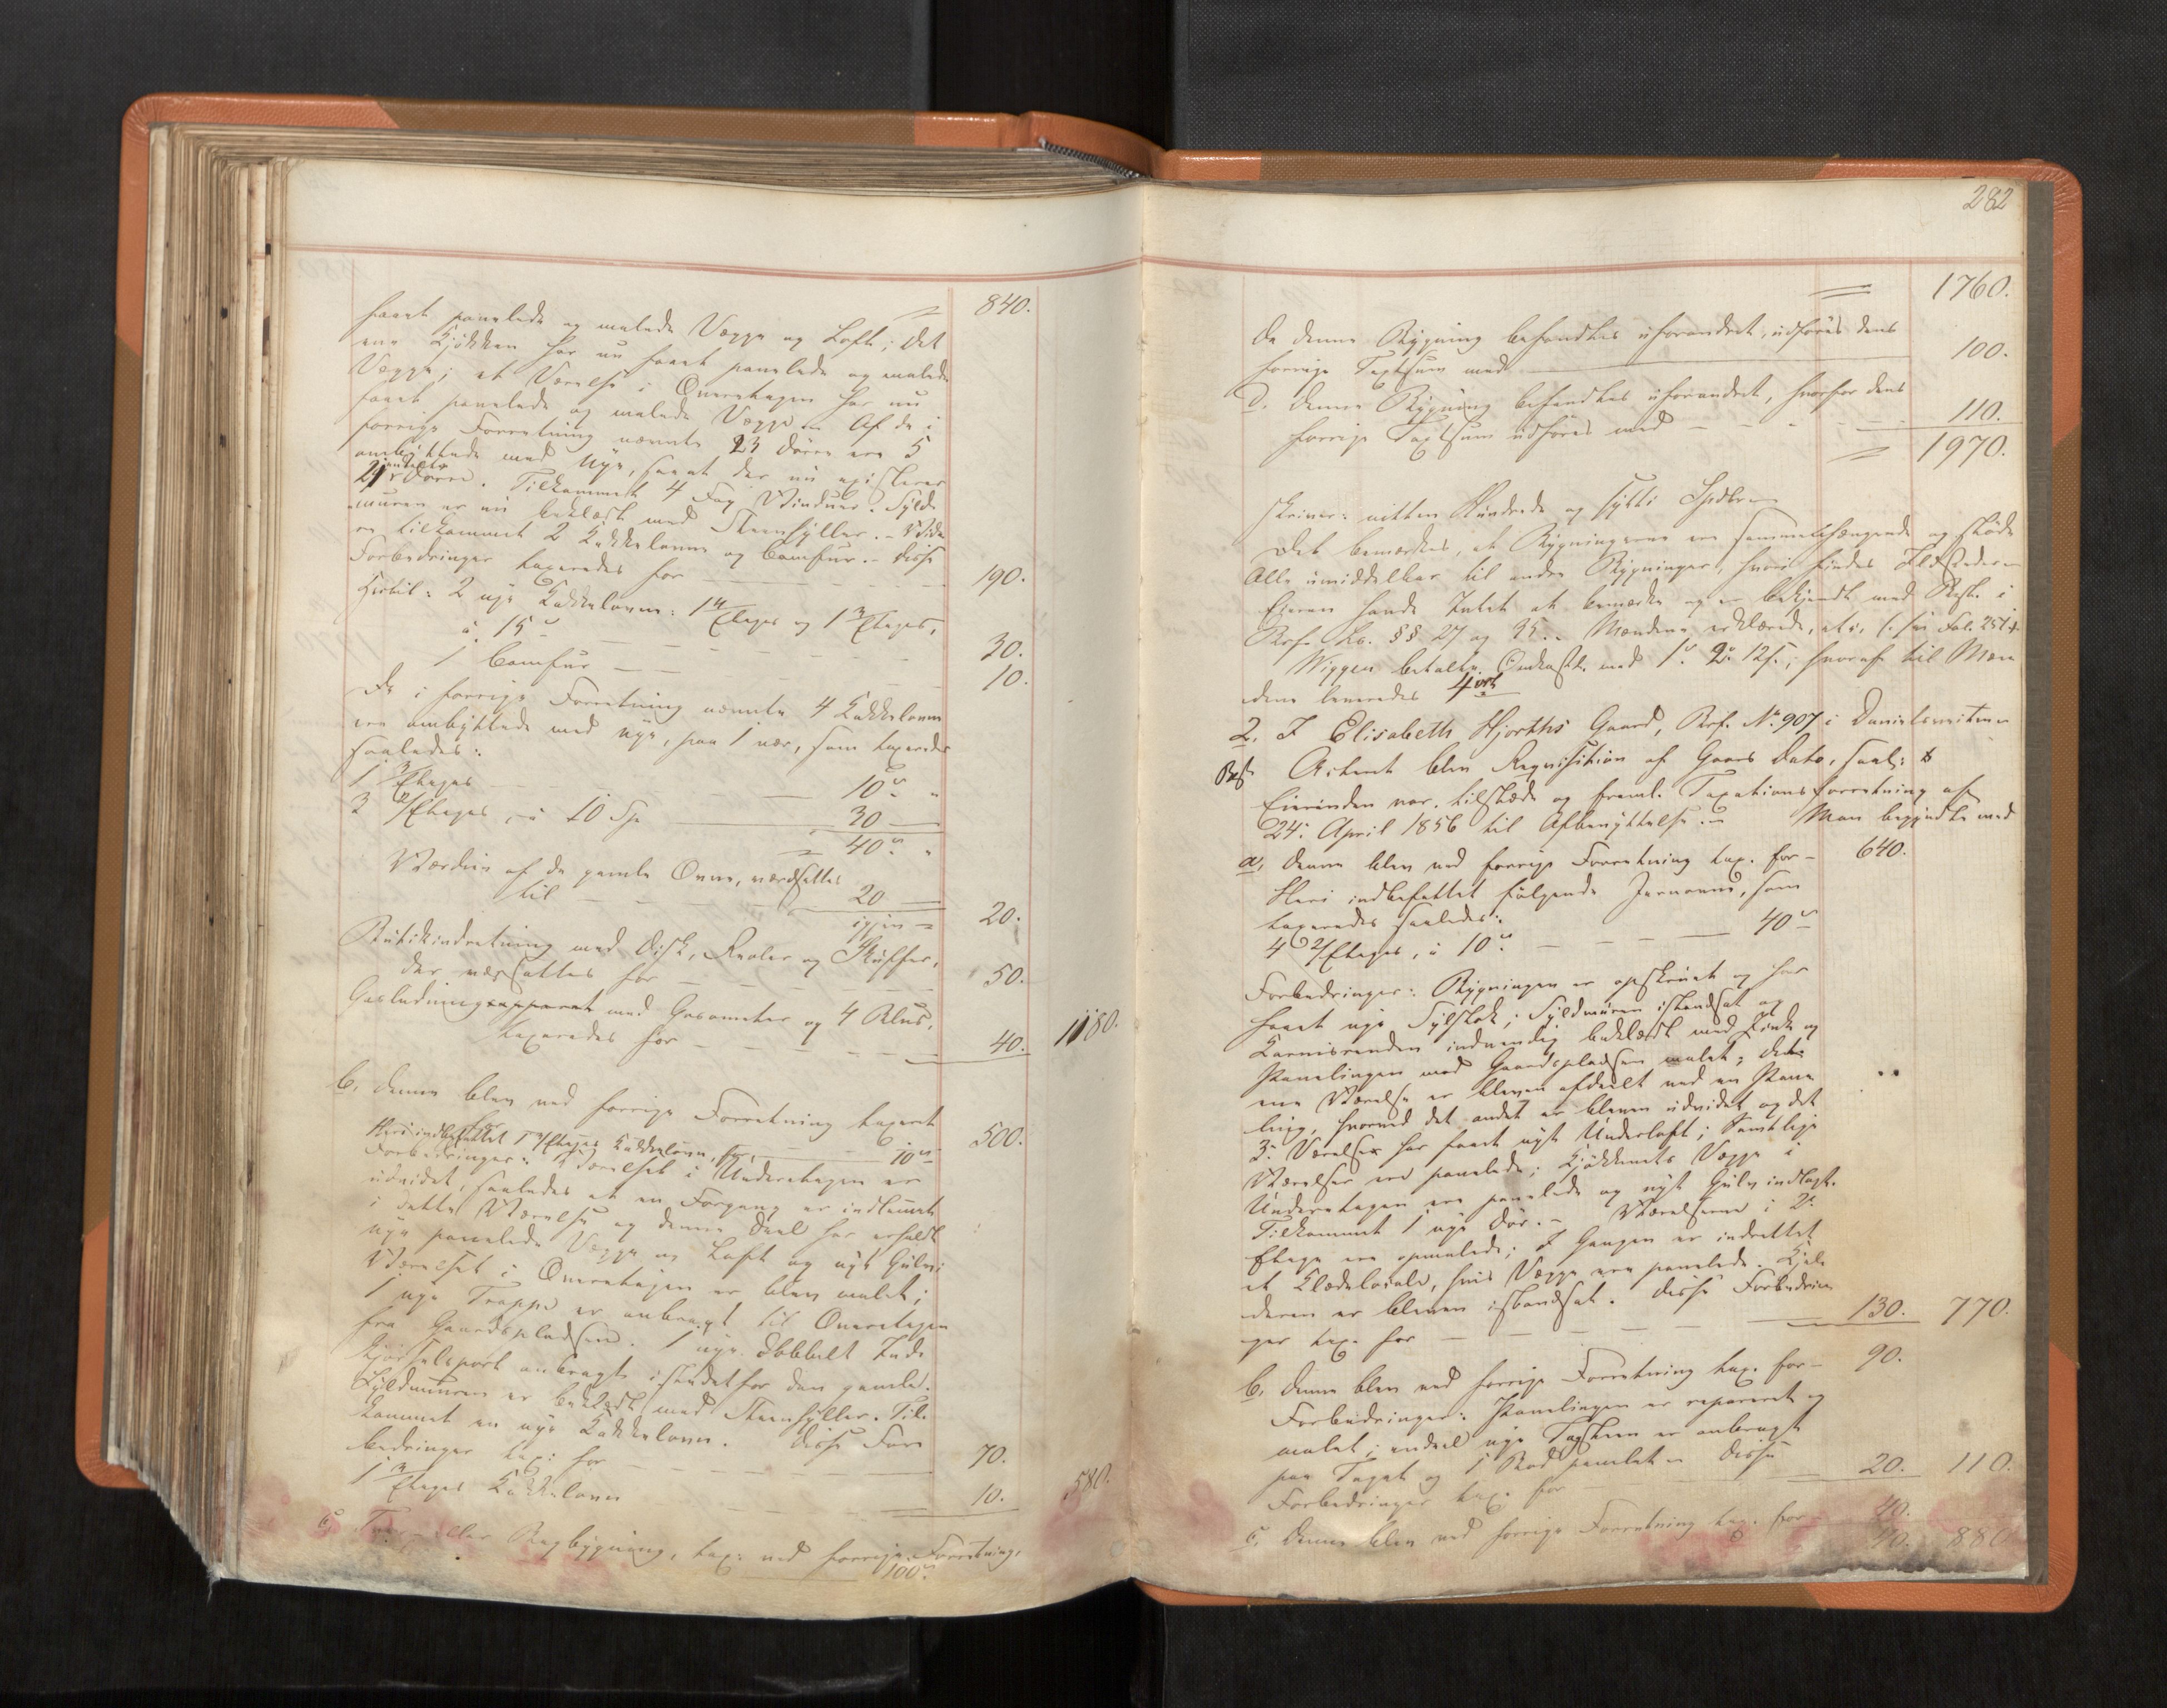 = 840.
faaet panelede og malede Vægge og Loft; det
ene Kjökken har nu faaet panelede og malede
Vægge; et Værelse i Overetagen har nu
faaet panelede og malede Vægge. Af de i
forrige Forretning nævnte 23 Döre ere 5
ombyttede med nye, saa at der nu existerer
21 Döre. Tilkommet 4 Fag Vinduer. Syld
muren er nu beklædt med Steenhyller. - Vide
re tilkommet 2 Kakkelovne og Comfur. - Disse
Forbedringer taxeredes for - - - - 190.
Hertil: 2 nye Kakkelovne: 1 4 Etages og 1 3 Etages,
à 15 - - - - - 30.
1 Comfur - - - - - 10.
De i forrige Forretning nævnte 4 Kakkelovne
ere ombyttede med nye, paa 1 nær, som taxeredes
saaledes:
1 3 Etages - - - 10 "
3 2/Etages, à 10 Sp - 30 -
= 40 "
Værdien af de gamle Ovne, værdsattes
til - - - - 20 -
igjen = 20.
Butikindretning med Disk, Reoler og Skuffer,
der værdsattes for - - - - 50.
Gasledning med Gasometer og 4 Blus,
taxeredes for - - - - 40. 1180.
b, denne blev ved forrige Forretning taxeret
for 500.
Heri indbefattet 1 2/Etages Kakkelovn, for, - 10
Forbedringer: Værelset i Underetagen er
udvidet, saaledes at en Forgang er indlemmet
i dette Værelse og denne Deel har erholdt
nye panelede Vægge og Loft og nyt Gulv;
Værelset i Overetagen er blev malet;
1 nye Trappe er anbragt til Overetagen
fra Gaardspladsen. 1 nye dobbelt Ind
kjörselsport anbragt istedetfor den gamle.
Syldmuren er beklædt med Steenhyller. Til
kommet en nye Kakkelovn. Disse For
bedringer tax: for - - - - 70.
1 3 Etages Kakkelovn - - - 10. 580.
c, eller Bagbygning, tax: ved forrige Forretning,
100
282
= 1760.
Da denne Bygning befandtes uforandret, udföres dens
forrige Taxtsum med - 100.
d, denne Bygning befandtes uforandret, hvorfor dens
forrige Taxtsum udföres med - - - - 110.
= 1970.
skriver: nitten Hundrede og sytti Spdlr -
Det bemærkes, at Bygningerne ere sammenhængende og stöde
Alle umiddelbar til andre Bygninger, hvori findes Ildsteder -
Eieren havde Intet at bemærke og er bekjendt med Bestk. i
Brf. Lo. §§ 27 og 95. - Mændene erklærede, at i, (se Fol. 257.)
Wiggen betalte Omkostn. med 1 2 12 s.; hvoraf til Mæn
dene leveredes 4 ort
2. I Elisabeth Hjorths Gaard, Brf. No 907 i Danielsveiten -
Besk Acteret blev Requisition af Gaars Dato, saal:
Eierinden var tilstæde og freml. Taxationsforretning af
24: April 1856 til Afbenyttelse. - Man begyndte med
a, denne blev ved forrige Forretning tax. for - 640.
Heri indbefattet fölgende Jernovne, som
taxeredes saaledes:
4 2/Etages, à 10 - - - 40
Forbedringer: Bygningen er opskruet og har
faaet nye Sylstok; Syldmuren istandsat og
Karnisrenden indvendig beklædt med Zink og
Panelingen mod Gaardspladsen malet; det
ene Værelse er bleven afdeelt ved en Pane
ling, hvorved det andet er bleven udvidet og det
3: Værelse har faaet nyt Underloft; Samtlige
Værelser ere panelede; Kjökkenets Vægge i
Underetagen ere panelede og nyt Gulv indlagt.
Tilkommet 1 nye Dör. - Værelserne i 2:
Etage ere opmalede; I Gangen er indrettet
et Klædelocale, hvis Vægge ere panelede. Kjel
deren er bleven istandsat. Disse Forbedrin
ger tax. for - - - - 130. 770.
b, denne blev ved forrige Forretning tax. for - 90.
Forbedringer: Panelingen er repareret og
malet; endeel nye Tagsteen er anbragt
paa Taget og 1 Bod panelet - Disse
Forbedringer tax. for - 20. 110.
c, denne blev ved forrige Forretning tax. for - 40.
40. 880